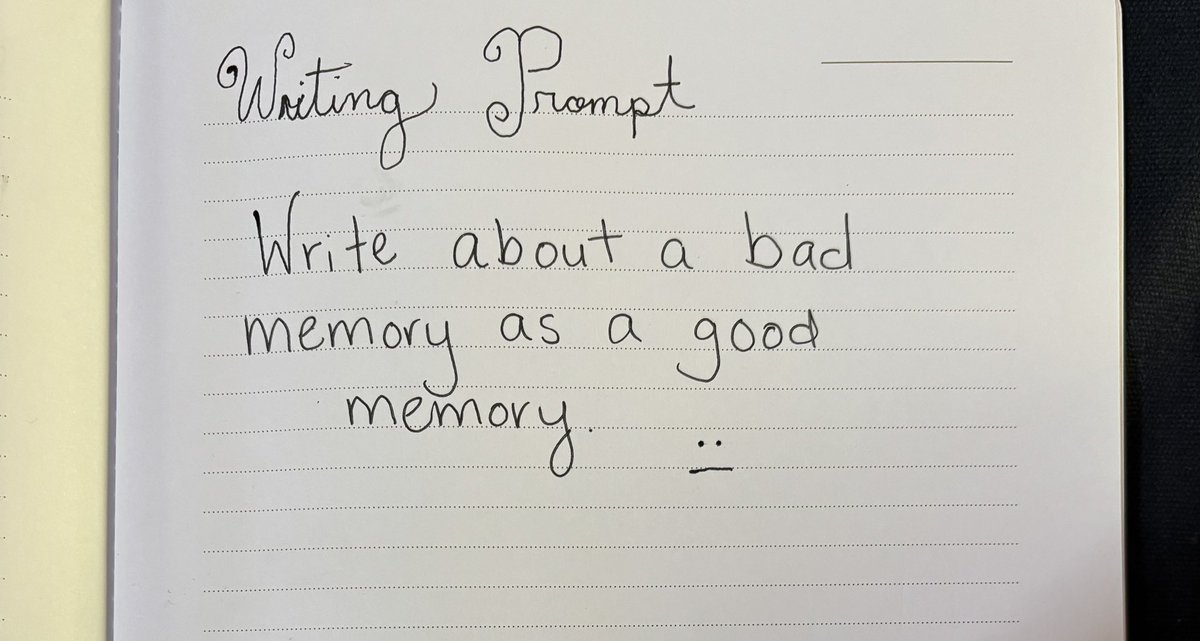 Writing Prompt
Write about a bad
memory as a good
memory.